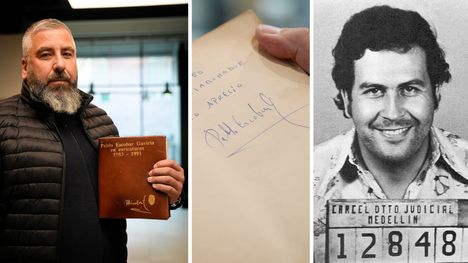 Pablo Escobar Gaviria
en caricaturas
1983 - 1991
APRECIO
Pablo Escobar
CARCEL DTTO JUDICIAL
MEDELLIN
12848